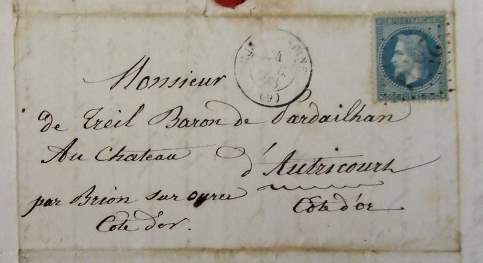 Monsieur
de Treil Baron de Pardailhan
Au Chateau d'Autricourt
par Brion sur ource Cote d'or
Cote d'or.
(9)